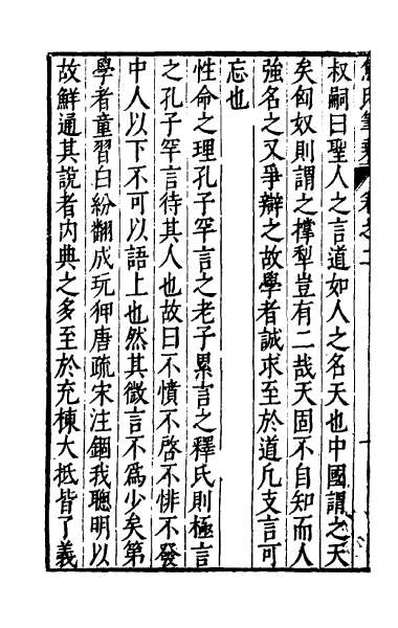 焦氏筆乘 卷之二
叔嗣曰聖人之言道如人之名天也中國謂之天
矣匈奴則謂之撐犁豈有二哉天固不自知而人
強名之又爭辯之故學者誠求至於道凡支言可
忘也
性命之理孔子罕言之老子累言之釋氏則極言
之孔子罕言待其人也故曰不憤不啓不悱不發
中人以下不可以語上也然其微言不爲少矣第
學者童習白紛翻成玩狎唐疏宋注錮我聰明以
故鮮通其說者內典之多至於充棟大抵皆了義